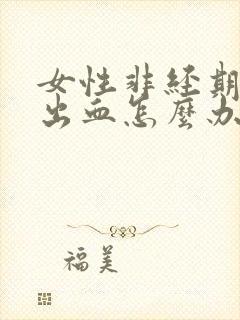 女性非经期
出血怎麼办
福美